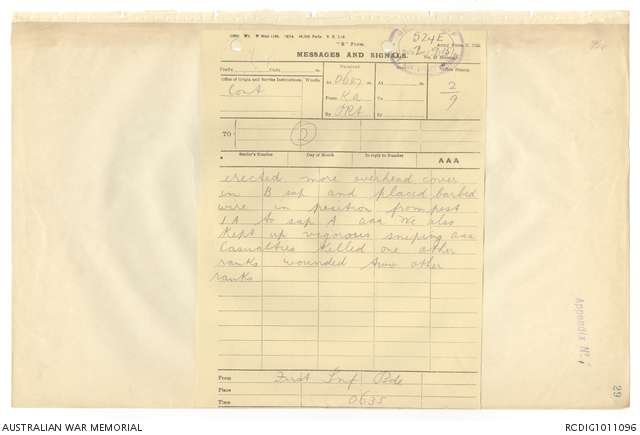 "B" Form.
MESSAGES AND SIGNALS.
524E
Prefix Code
Received
Office of Origin and Service Instructions. Words.
Cont
At 0627 m.
From Ka
By PRA
At m.
To
By
2/9
TO
2
Sender's Number Day of Month In reply to Number AAA
erected more overhead cover
in B sap and placed barbed
wire in position from post
1 A to sap A aaa We also
kept up vigorous sniping aaa
Casualties killed one other
ranks wounded two other
ranks
From First Inf Bde
Place
Time 0635
Appendix No. 1
29
AUSTRALIAN WAR MEMORIAL
RCDIG1011096